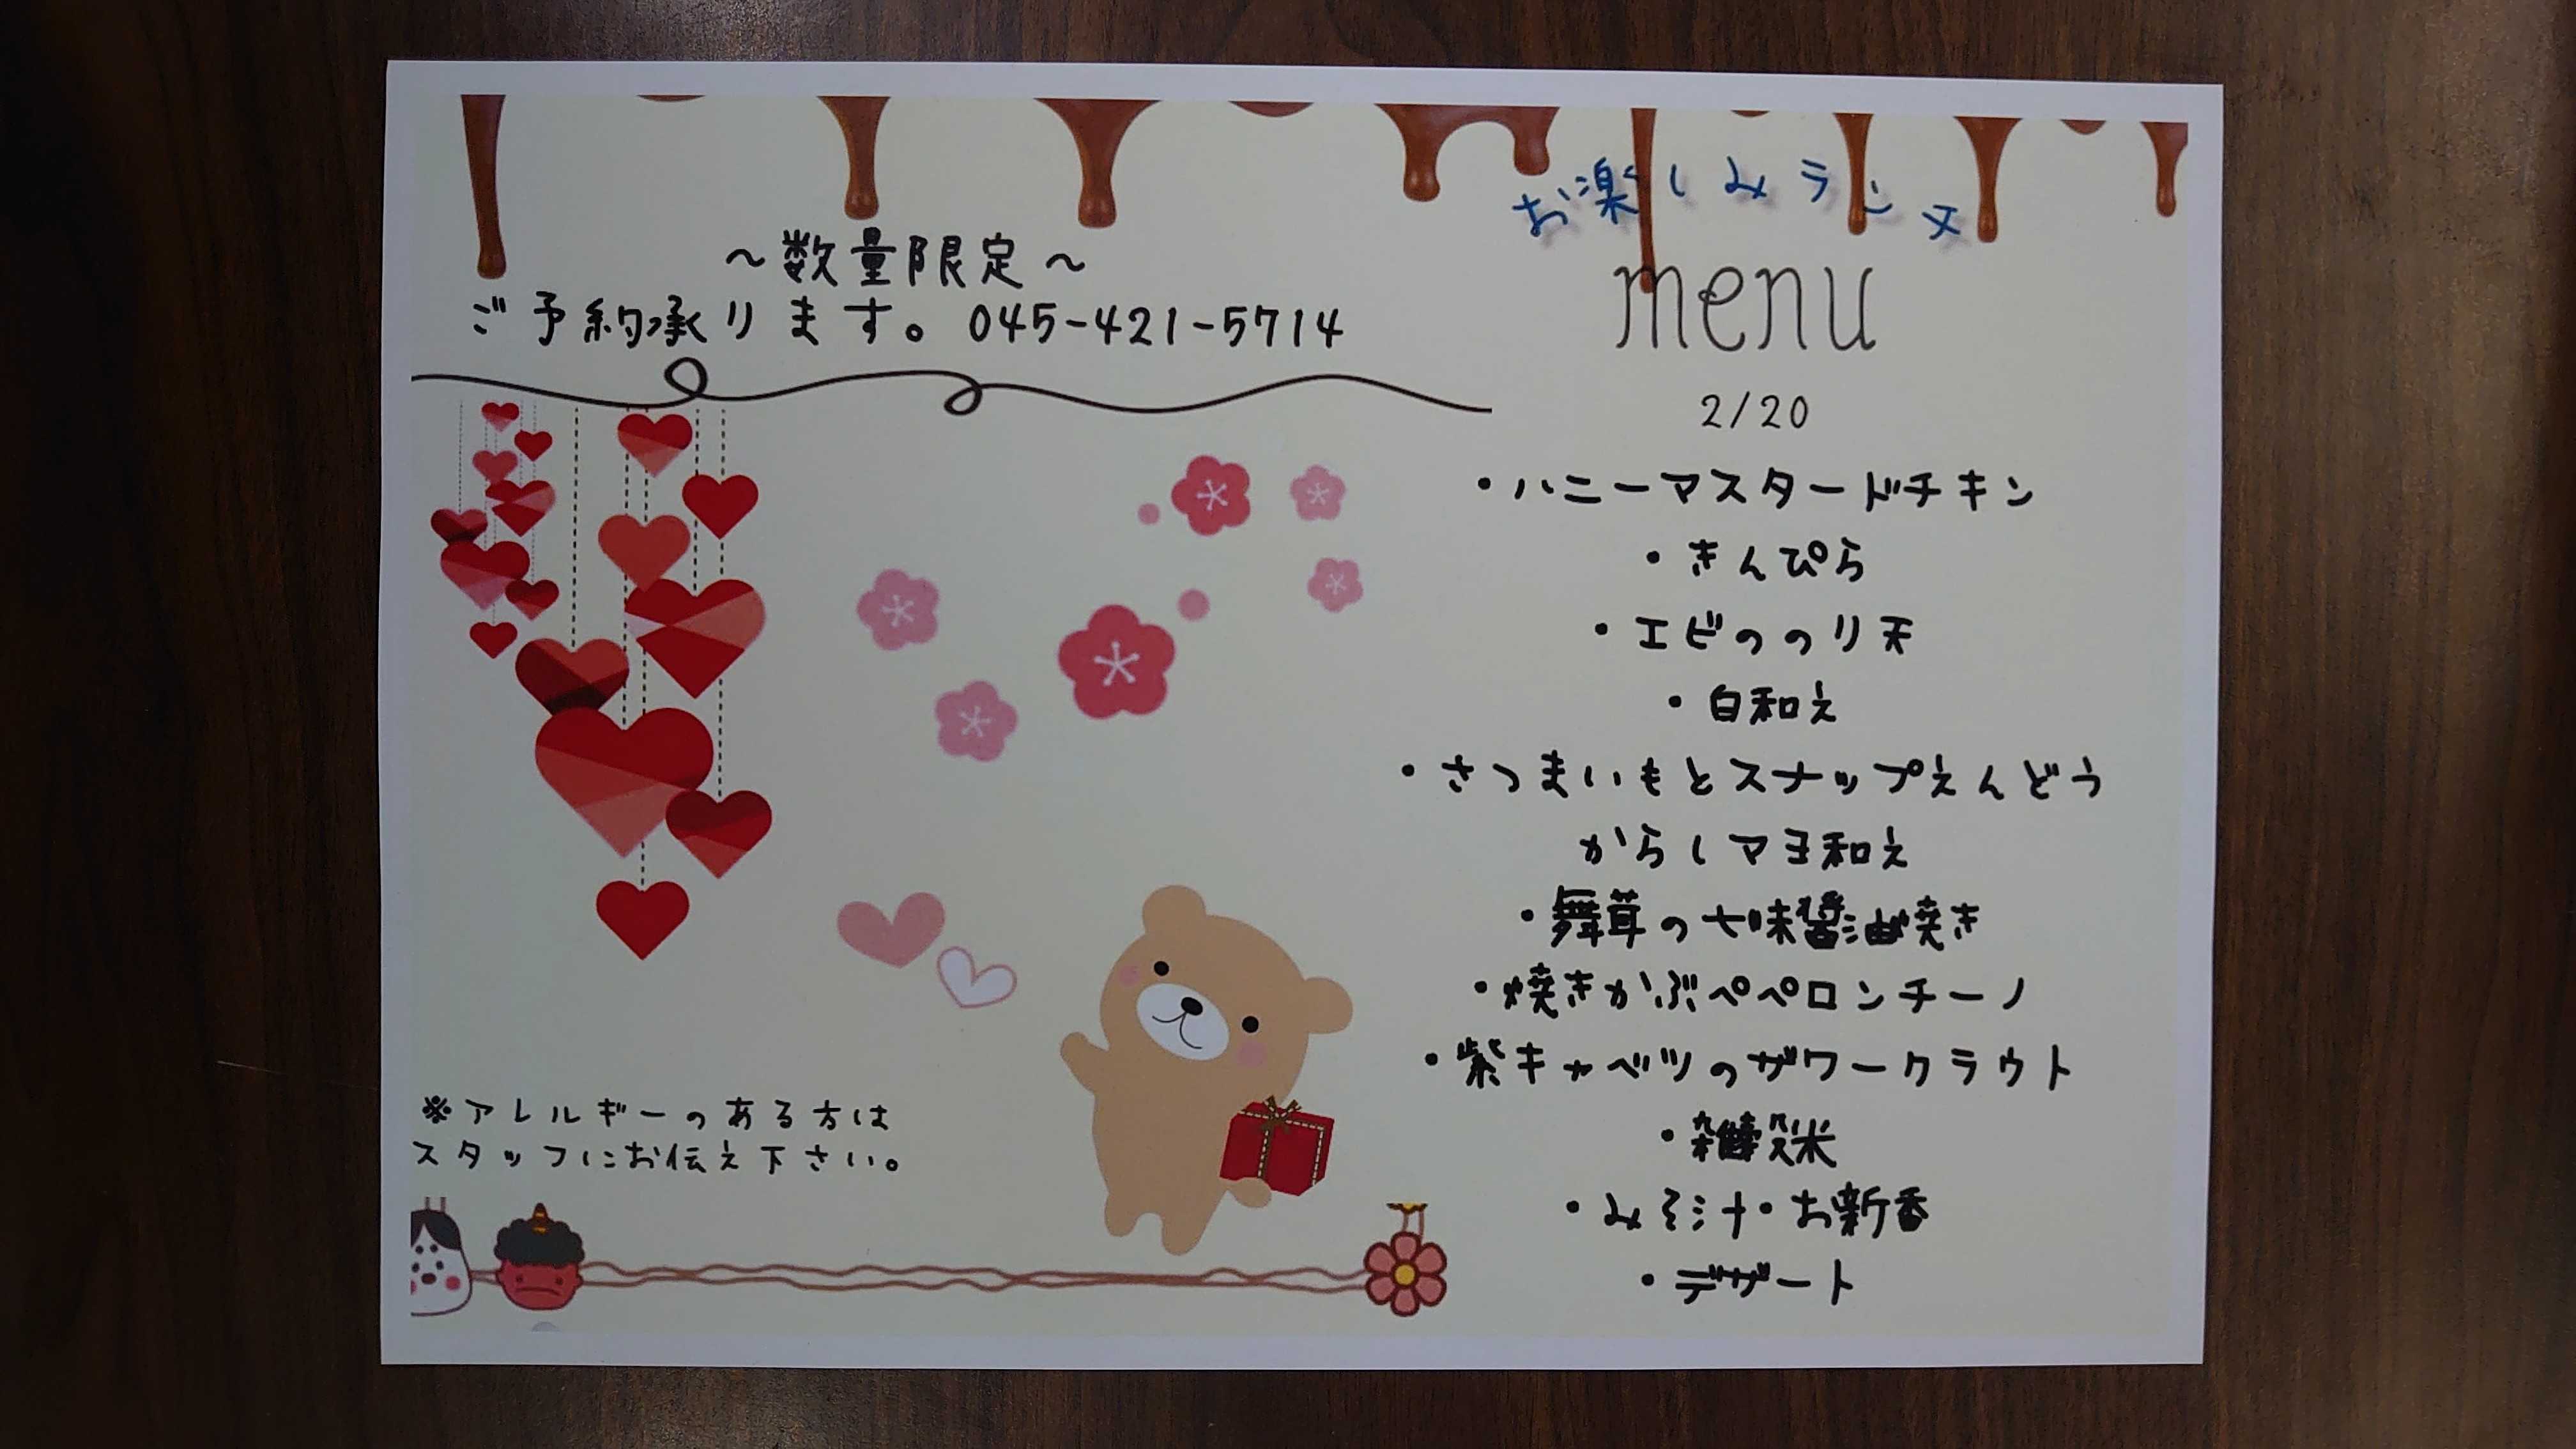 ～数量限定～
ご予約承ります。045-421-5714
※アレルギーのある方は
スタッフにお伝え下さい。
お楽しみランチ
menu
2/20
・ハニーマスタードチキン
・きんぴら
・エビののり天
・白和え
・さつまいもとスナップえんどう
からしマヨ和え
・舞茸の七味醤油焼き
・焼きかぶペペロンチーノ
・紫キャベツのザワークラウト
・雑穀米
・みそ汁・お新香
・デザート